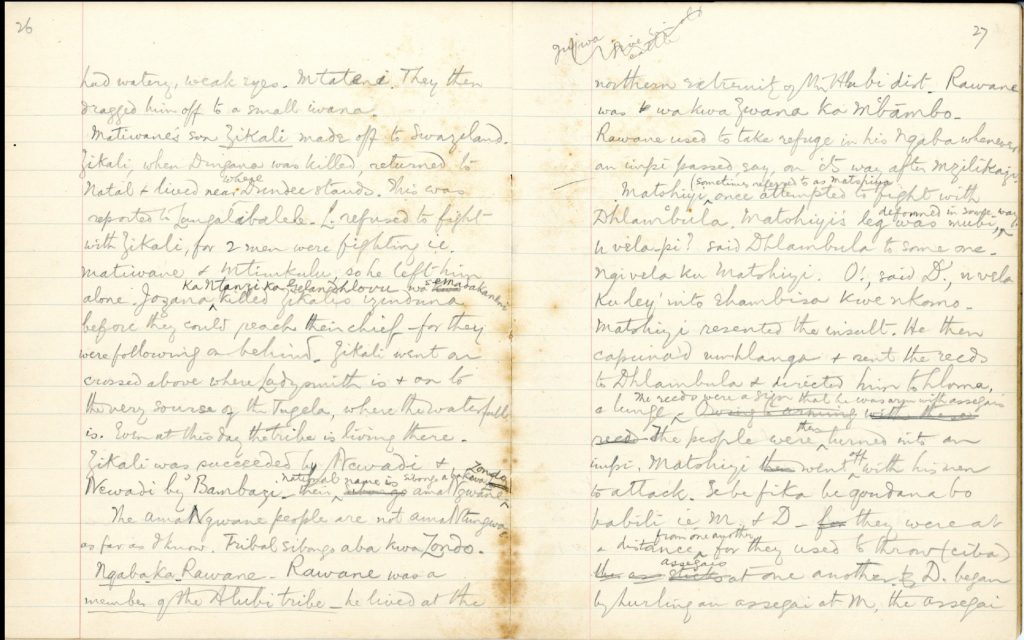 26
had watery, weak eyes. Mtatena. They then
dragged him off to a small iwana.
Matiwane's son Zikali made off to Swaziland.
Zikali, when Dingana was killed, returned to
Natal & lived near where Dundee stands. This was
reported to Langalibalele. L. refused to fight
with Zikali, for 2 men were fighting i.e.
Matiwane & Mtimkulu, so he left him
alone. Jozana ka Ntanzi ka killed Zikali's izinduna
before they could reach their chief - for they
were following on behind. Zikali went on
crossed above where Ladysmith is & on to
the very source of the Tugela, where the waterfall
is. Even at this day the tribe is living there.
Zikali was succeeded by Ncwadi &
Ncwadi by Bambazi. Their national name is amaNgwane
The amaNgwane people are not amaNtungwa
as far as I know. Tribal sibongo aba kwa Zondo.
Ngaba ka Rawane - Rawane was a
member of the Hlubi tribe - he lived at the
27
northern extremity of the Hlubi dist. Rawane
was wa kwa Zwana ka Mbambo.
Rawane used to take refuge in his Ngaba whenever
an impi passed, say, on its way after Mzilikazi.
Matshiyi (sometimes referred to as Matshiya) once attempted to fight with
Dhlambula. Matshiyi's leg was mubi, deformed in some way.
U vela pi? said Dhlambula to some one.
Ngi vela ku Matshiyi. O!, said D., u vela
ku ley' into kwe nkomo.
Matshiyi resented the insult. He then
umhlanga & sent the reeds
to Dhlambula & directed him to hloma,
a lunge. The reeds were a sign that he was arm with assegais
The people were thus turned into an
impi. Matshiyi went off with his men
to attack. Se be fika be qondana bo
babili i.e. M. & D. - they were at
a distance from one another for they used to throw (ciba)
assegais at one another. D. began
by hurling an assegai at M, the assegai